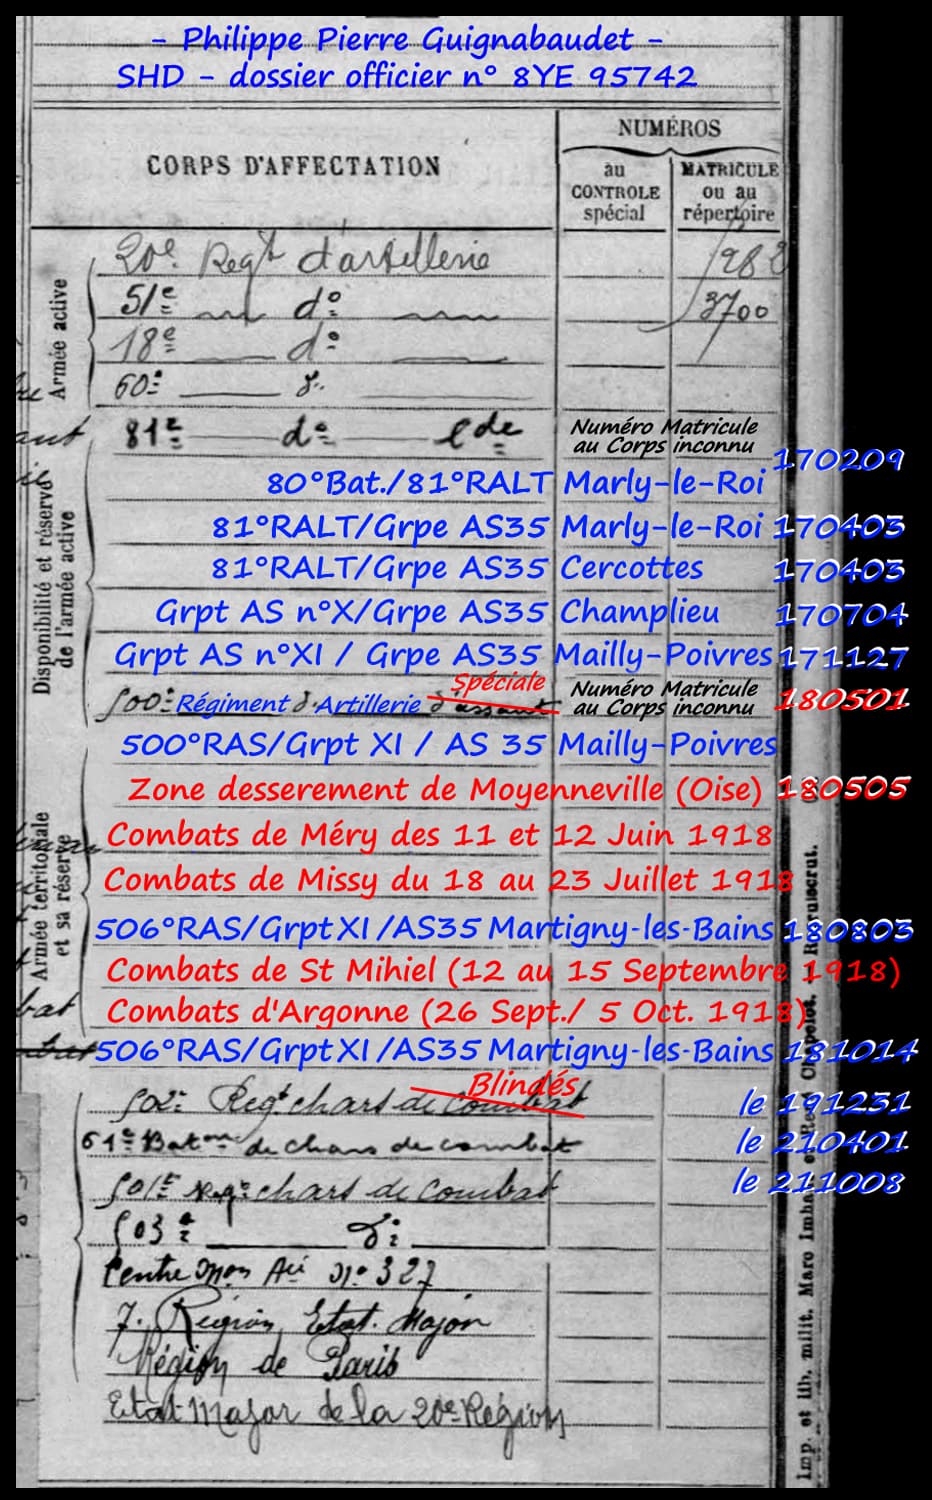 - Philippe Pierre Guignabaudet -
SHD - dossier officier n° 8YE 95742
CORPS D'AFFECTATION
NUMÉROS
au CONTROLE spécial
MATRICULE ou au répertoire
Armée active
20e Regt d'artillerie 1982
51e d° 3700
18e d°
60e d°
81e d° lde
Numéro Matricule
au Corps inconnu
170209
Disponibilité et réserve de l'armée active
80°Bat./81°RALT Marly-le-Roi
81°RALT/Grpe AS35 Marly-le-Roi 170403
81°RALT/Grpe AS35 Cercottes 170403
Grpt AS n°X/Grpe AS35 Champlieu 170704
Grpt AS n°XI / Grpe AS35 Mailly-Poivres 171127
Spéciale
500e Régiment d'Artillerie d'assaut
Numéro Matricule
au Corps inconnu
180501
500°RAS/Grpt XI / AS 35 Mailly-Poivres
Zone desserement de Moyenneville (Oise) 180505
Armée territoriale et sa réserve
Combats de Méry des 11 et 12 Juin 1918
Combats de Missy du 18 au 23 Juillet 1918
506°RAS/Grpt XI /AS35 Martigny-les-Bains 180803
Combats de St Mihiel (12 au 15 Septembre 1918)
Combats d'Argonne (26 Sept./ 5 Oct. 1918)
506°RAS/Grpt XI /AS35 Martigny-les-Bains 181014
Blindés
502e Regt chars de Combat le 191231
61e Baton de chars de combat le 210401
501e Regt chars de Combat le 211008
503e d°
Centre Mon Aie N° 327
7. Région, Etat. Major
Région de Paris
Etat Major de la 20e Région
Imp. et lib. milit. Marc Imha